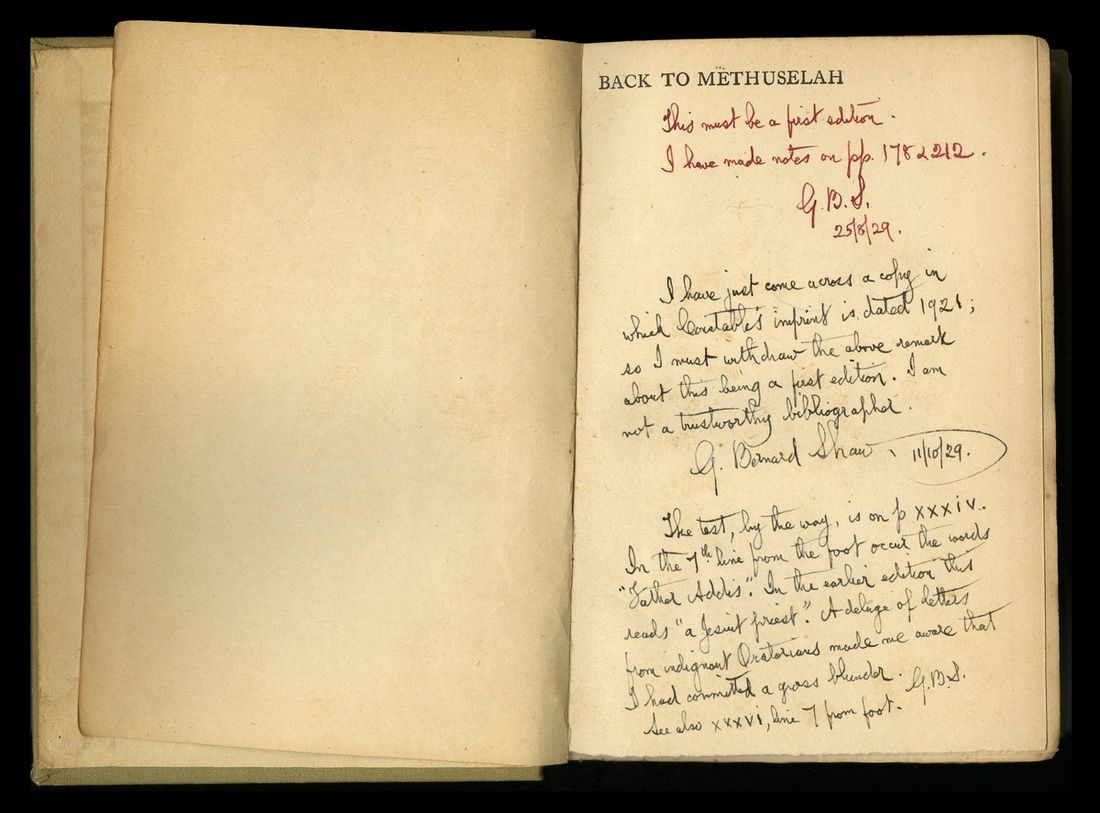 BACK TO METHUSELAH
This must be a first edition.
I have made notes on pp. 178 & 212.
G.B.S.
25/8/29.
I have just come across a copy in
which Constable's imprint is dated 1921;
so I must withdraw the above remark
about this being a first edition. I am
not a trustworthy bibliographer.
G. Bernard Shaw
11/10/29.
The test, by the way, is on p xxxiv.
In the 7th line from the foot occur the words
"Father Addis". In the earlier edition this
reads "a Jesuit priest". A deluge of letters
from indignant Oratorians made me aware that
I had committed a gross blunder. G.B.S.
See also xxxvi, line 7 from foot.